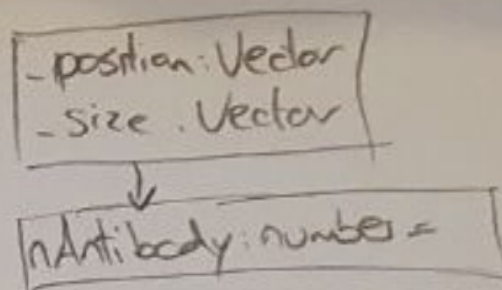 - position: Vector
- size: Vector
nAntibody: number =